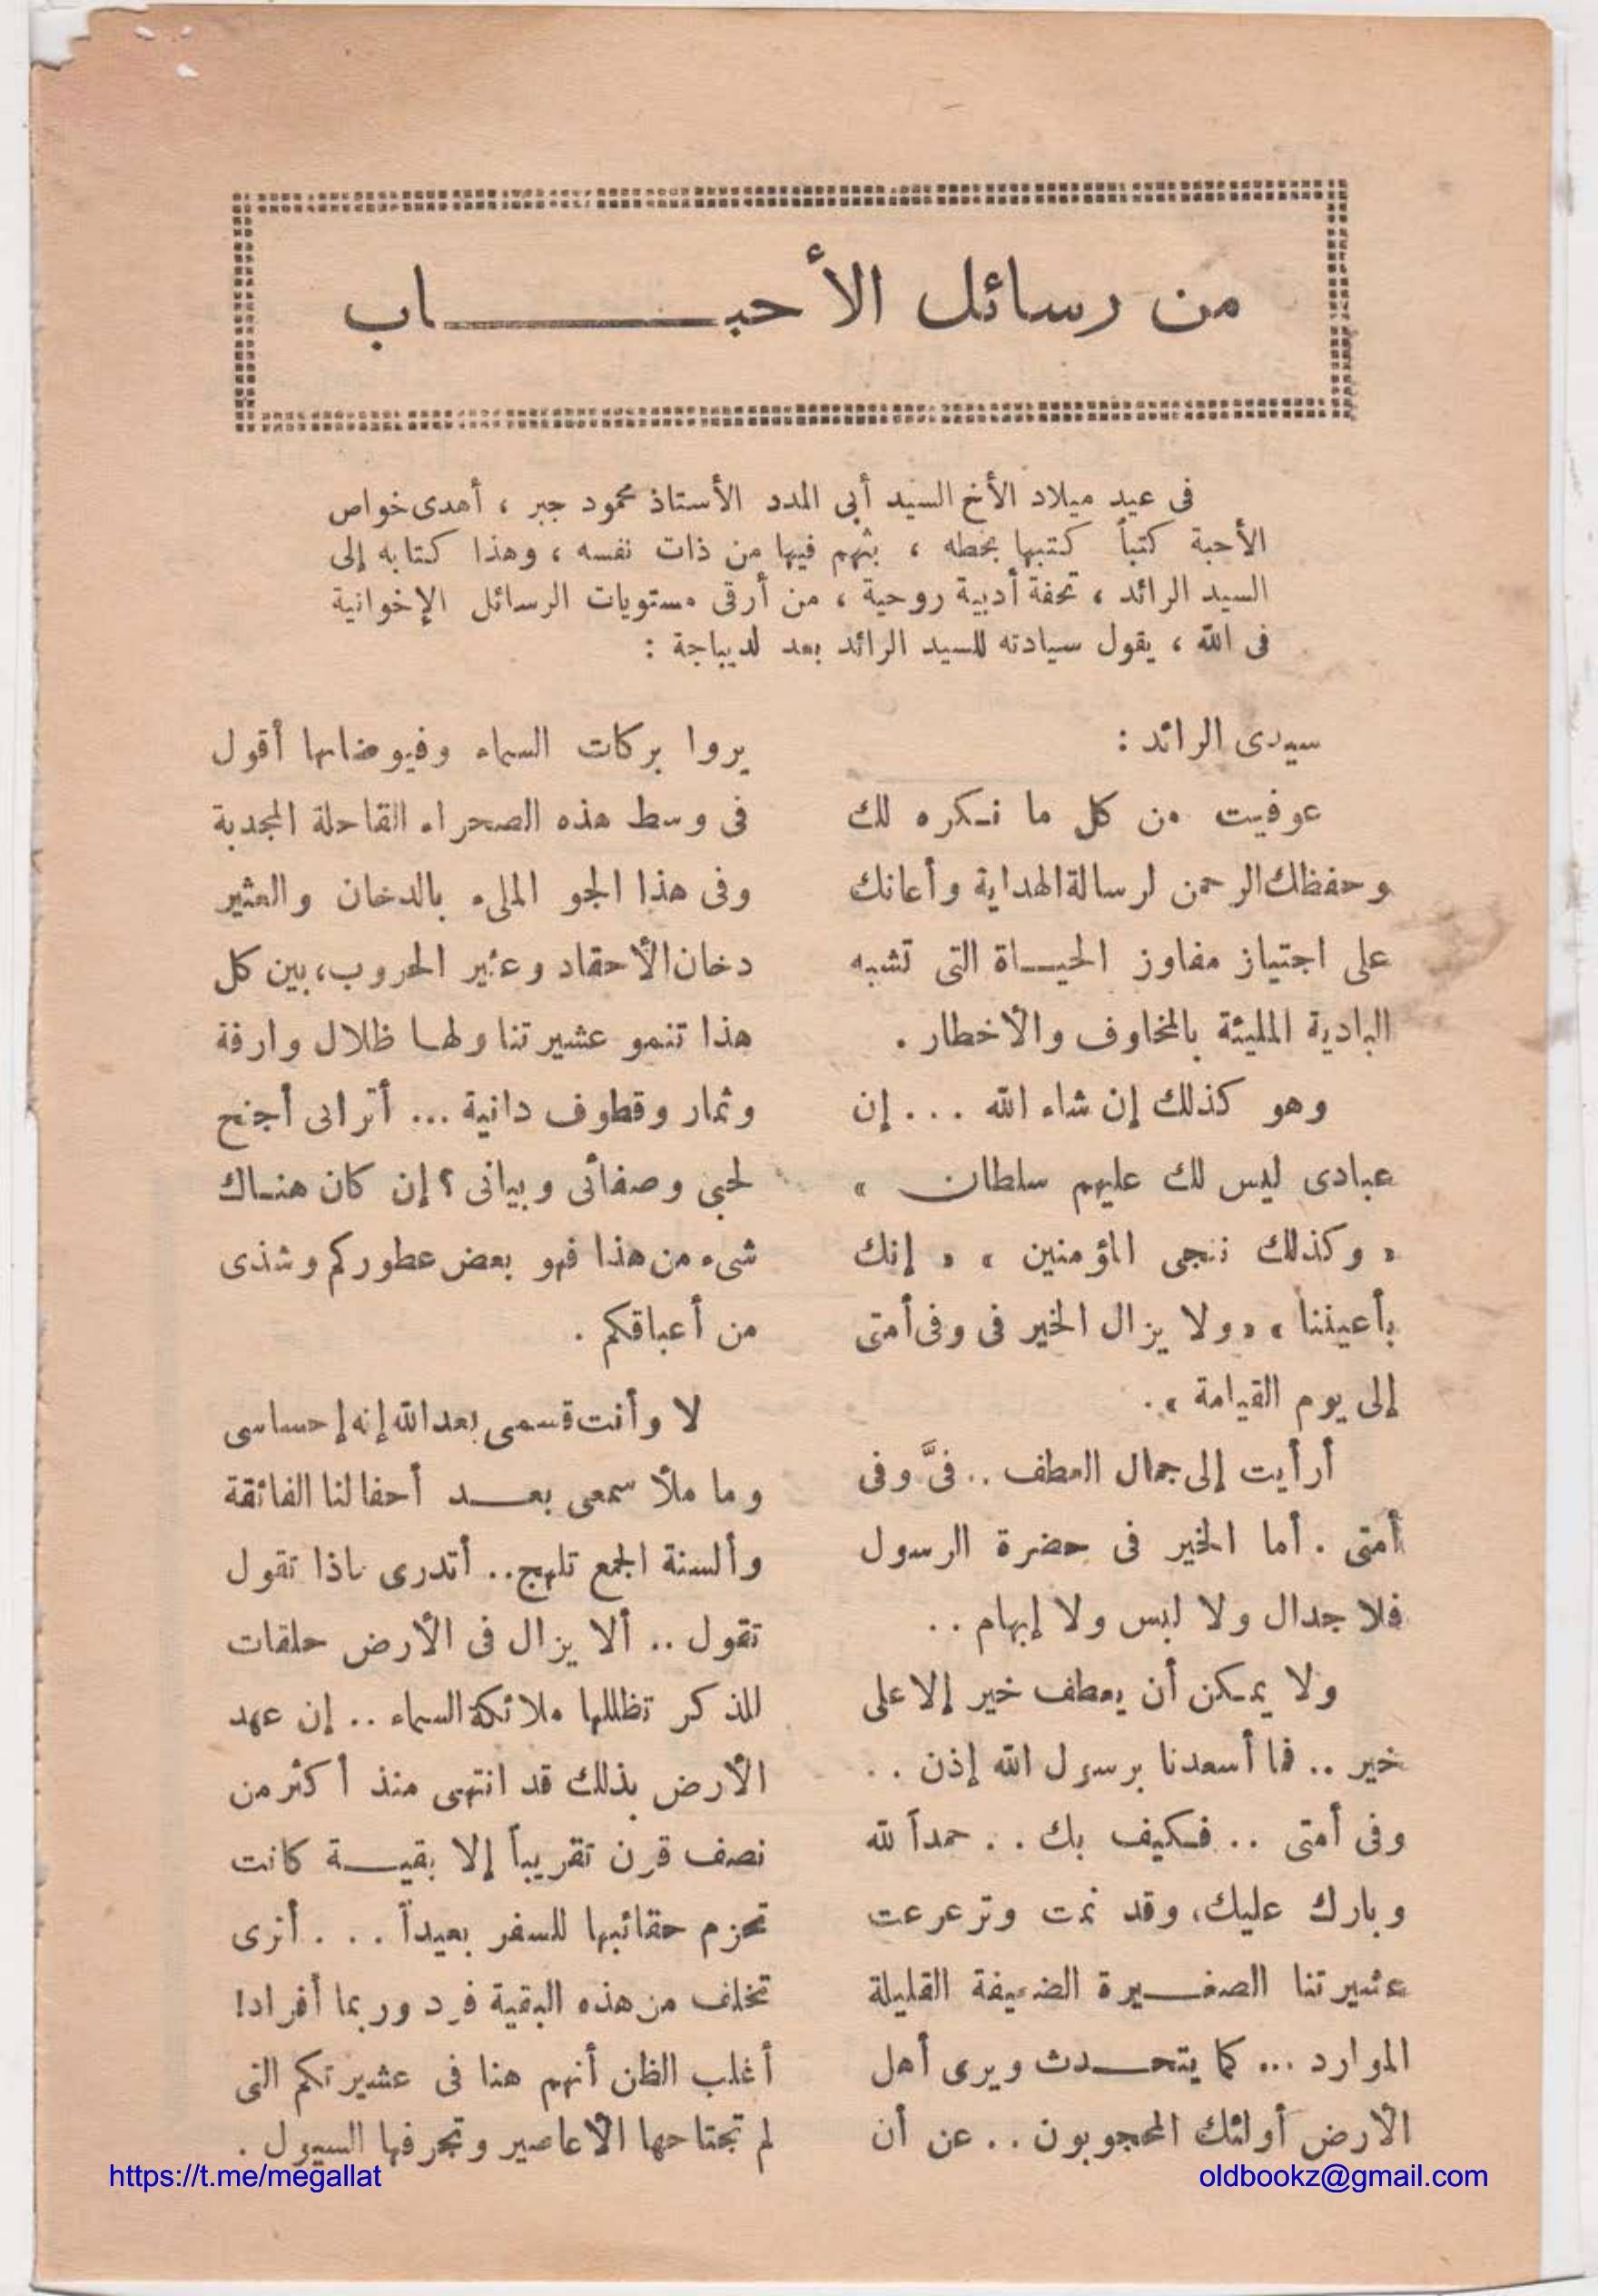 من رسائل الأحباب
فى عيد ميلاد الأخ السيد أبى المدد الأستاذ محمود جبر ، أهدى خواص
الأحبة كتباً كتبها بخطه ، بثهم فيها من ذات نفسه ، وهذا كتابه إلى
السيد الرائد ، تحفة أدبية روحية ، من أرقى مستويات الرسائل الإخوانية
فى الله ، يقول سيادته للسيد الرائد بعد لديباجة :
سيدى الرائد :
عوفيت من كل ما نكره لك
وحفظك الرحمن لرسالة الهداية وأعانك
على اجتياز مفاوز الحياة التى تشبه
البادية المليئة بالمخاوف والأخطار .
وهو كذلك إن شاء الله ... إن
عبادى ليس لك عليهم سلطان »
« وكذلك ننجى المؤمنين » « إنك
بأعيننا » « ولا يزال الخير فى وفى أمتى
إلى يوم القيامة » .
أرأيت إلى جمال العطف .. فىَّ وفى
أمتى . أما الخير فى حضرة الرسول
فلا جدال ولا لبس ولا إبهام ..
ولا يمكن أن يعطف خير إلا على
خير .. فما أسعدنا برسول الله إذن ..
وفى أمتى .. فكيف بك .. حمداً لله
وبارك عليك، وقد نمت وترعرعت
عشيرتنا الصغيرة الضعيفة القليلة
الموارد ... كما يتحدث ويرى أهل
الأرض أولئك المحجوبون .. عن أن
يروا بركات السماء وفيوضاتها أقول
فى وسط هذه الصحراء القاحلة المجدبة
وفى هذا الجو الملىء بالدخان والعثير
دخان الأحقاد وعثير الحروب، بين كل
هذا تنمو عشيرتنا ولها ظلال وارفة
وثمار وقطوف دانية ... أترانى أجنح
لحبى وصفائى وبيانى ؟ إن كان هناك
شىء من هذا فهو بعض عطوركم وشذى
من أعباقكم .
لا وأنت قسمى بعد الله إنه إحساسى
وما ملأ سمعى بعد أحفالنا الفائقة
وألسنة الجمع تلهج .. أتدرى ماذا تقول
تقول .. ألا يزال فى الأرض حلقات
للذكر تظللها ملائكة السماء .. إن عهد
الأرض بذلك قد انتهى منذ أكثر من
نصف قرن تقريباً إلا بقية كانت
تحزم حقائبها للسفر بعيداً ... أترى
تخلف من هذه البقية فرد وربما أفراد!
أغلب الظن أنهم هنا فى عشيرتكم التى
لم تجتاحها الأعاصير وتجرفها السيول .
https://t.me/megallat
oldbookz@gmail.com